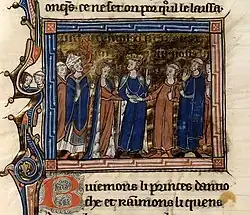 onques. ce ne seron por quil le laissa.
Buiemons li princes dantio
che et raimons li quens